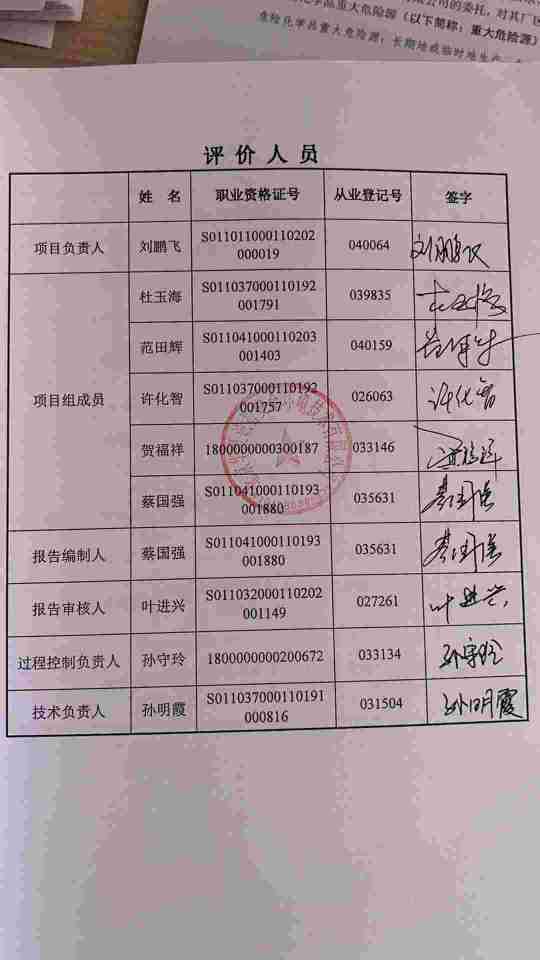 公司的委托，对其厂区
化学品重大危险源（以下简称：重大危险源）
危险化学品重大危险源：长期地或临时地生产
评价人员
姓 名 职业资格证号 从业登记号 签字
项目负责人 刘鹏飞 S011011000110202000019 040064 刘鹏飞
项目组成员
杜玉海 S011037000110192001791 039835
范田辉 S011041000110203001403 040159
许化智 S011037000110192001757 026063 许化智
贺福祥 1800000000300187 033146
蔡国强 S011041000110193001880 035631 蔡国强
报告编制人 蔡国强 S011041000110193001880 035631 蔡国强
报告审核人 叶进兴 S011032000110202001149 027261 叶进兴
过程控制负责人 孙守玲 1800000000200672 033134 孙守玲
技术负责人 孙明霞 S011037000110191000816 031504 孙明霞